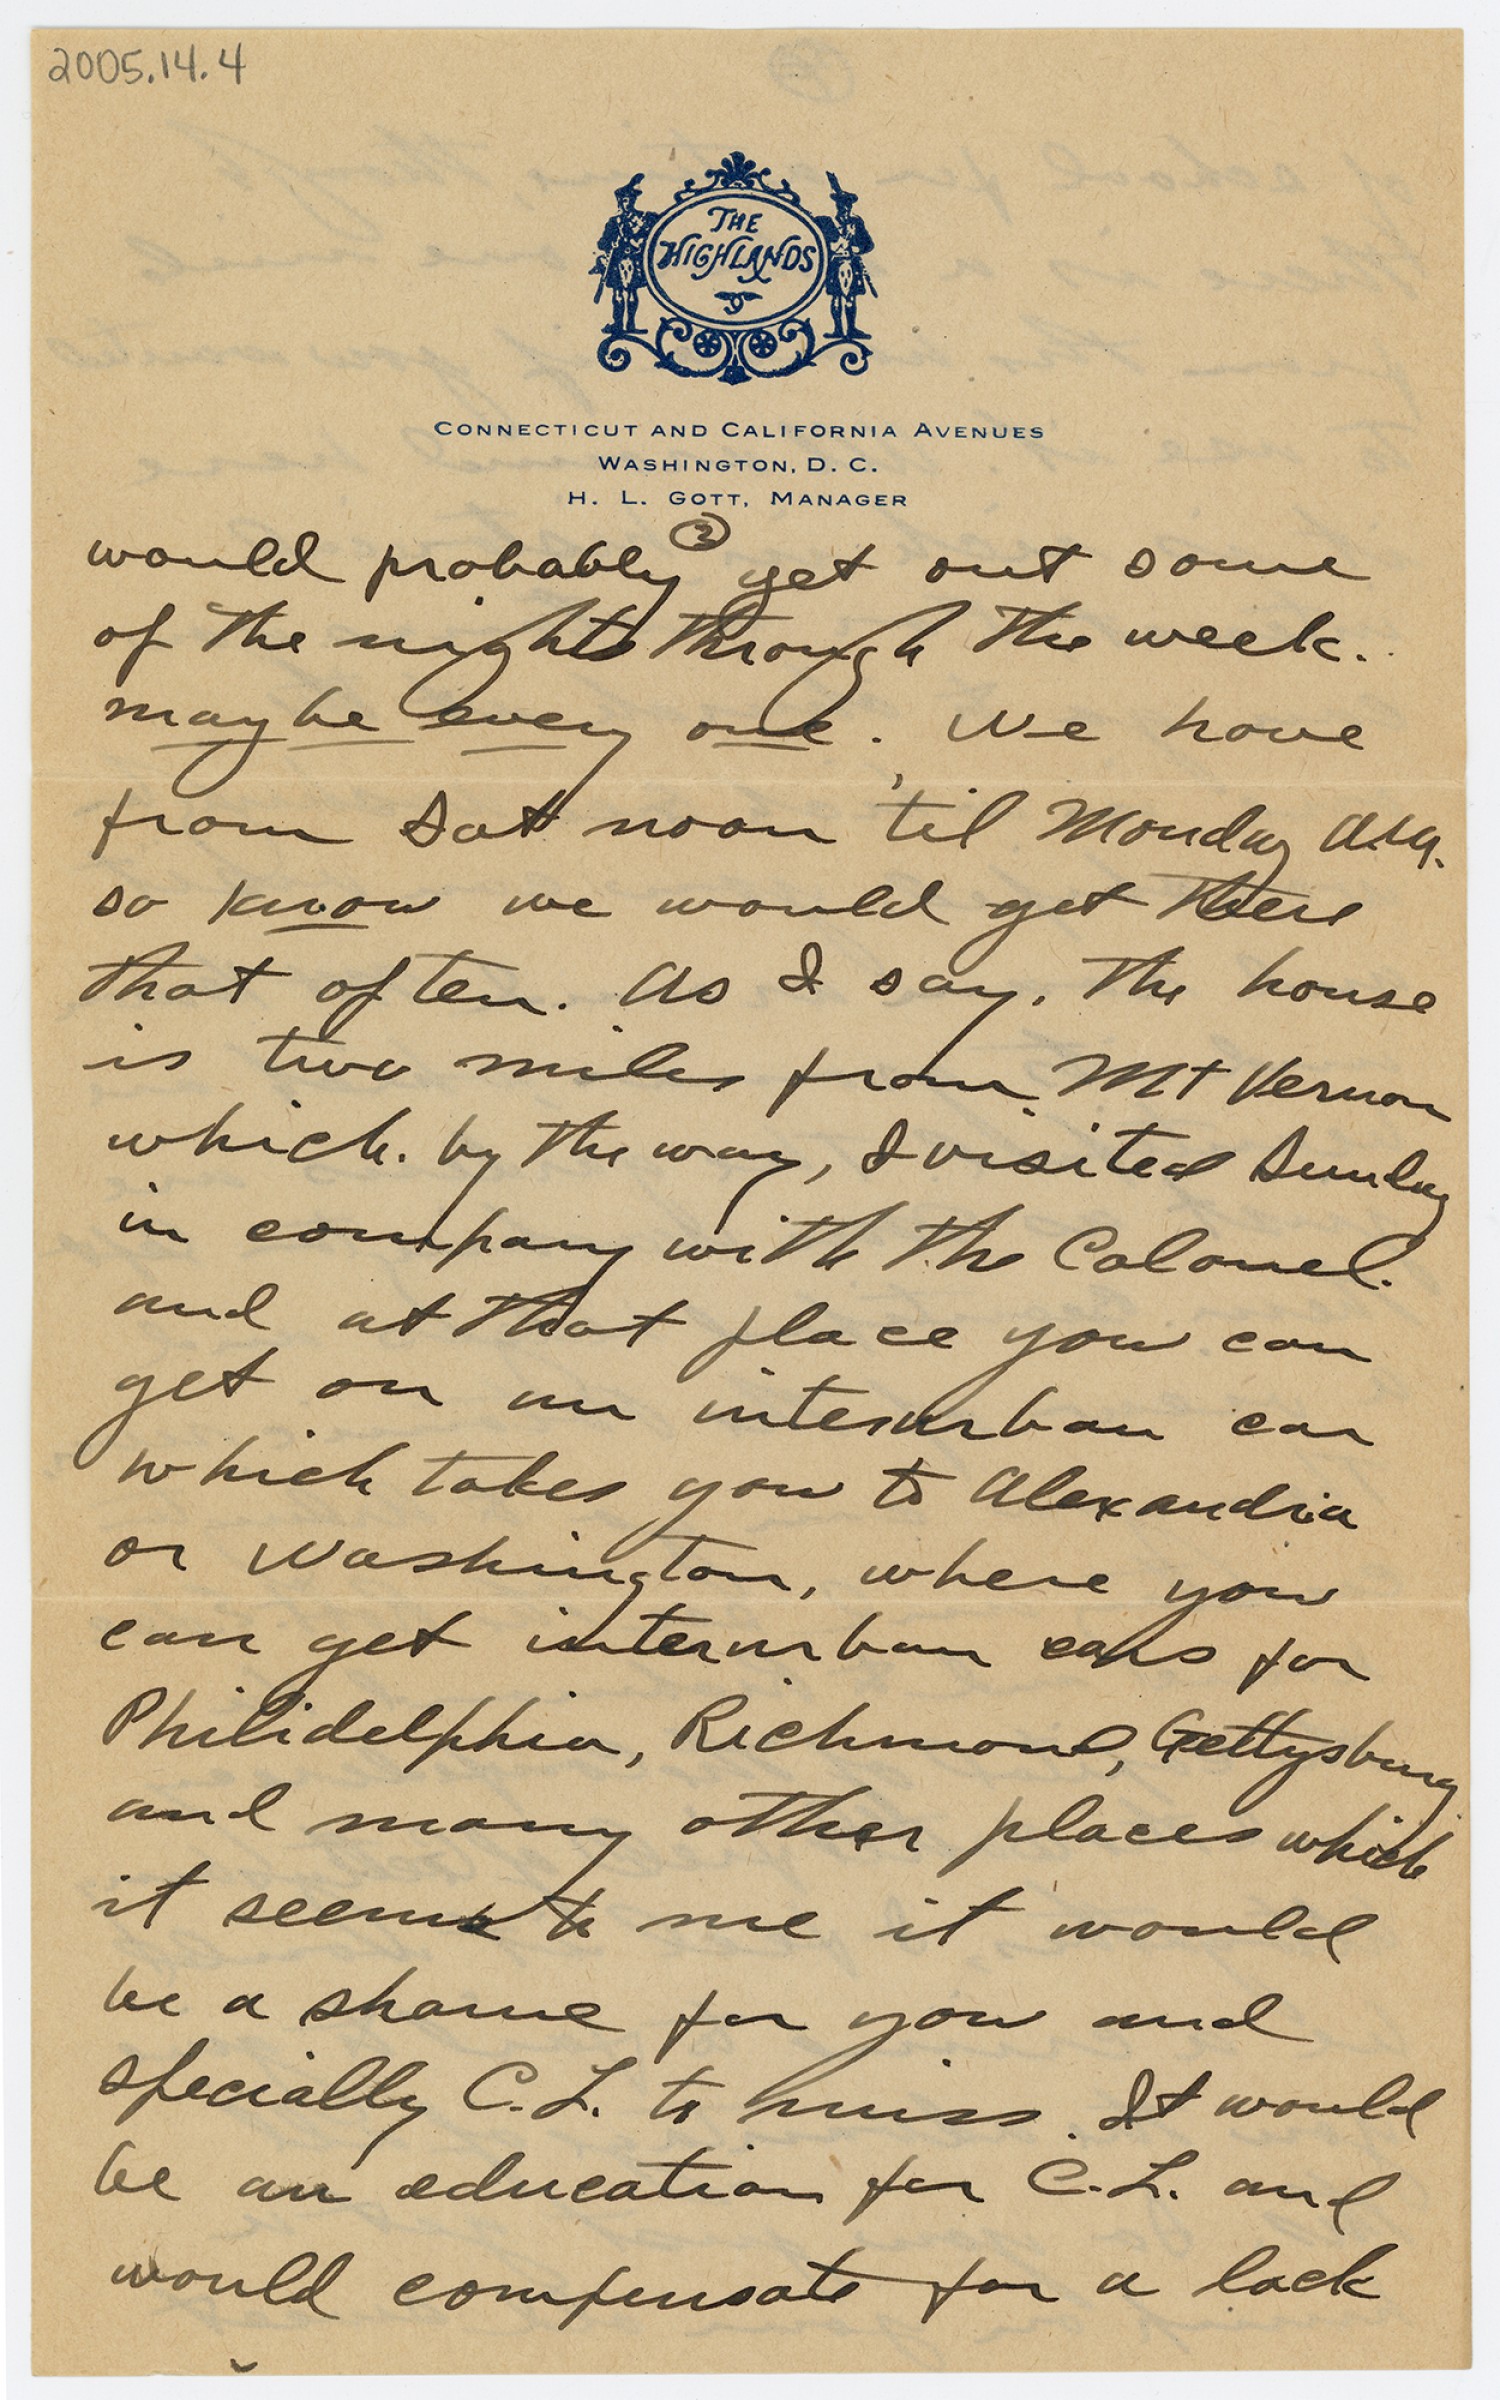 2005.14.4
THE
HIGHLANDS
CONNECTICUT AND CALIFORNIA AVENUES
WASHINGTON, D. C.
H. L. GOTT, MANAGER
②
would probably get out some
of the nights through the week.
maybe every one. We have
from Sat noon 'til Monday A.M.
so know we would get there
that often. As I say, the house
is two miles from Mt Vernon
which, by the way, I visited Sunday
in company with the Colonel.
and at that place you can
get on an interurban car
which takes you to Alexandria
or Washington, where you
can get interurban cars for
Philidelphia, Richmond, Gettysburg
and many other places which
it seems to me it would
be a shame for you and
specially C.L. to miss. It would
be an education for C.L. and
would compensate for a lack